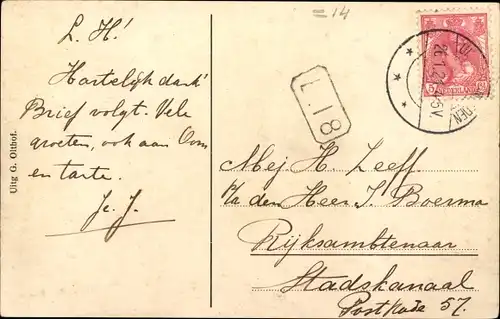 = 14
L. H!
Hartelijk dank!
Brief volgt. Vele
groeten, ook aan Oom
en tante.
Uitg G. Olthof.
L.18
5
NEDERLAND
Mej H. Leeff
p/a den Heer J. Boerma
Rijksambtenaar
Stadskanaal
Postkade 57.